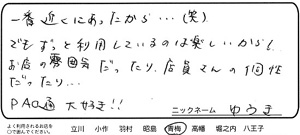 一番近くにあったから…(笑)
でもずっと利用しているのは楽しいから!
お店の雰囲気だったり、店員さんの個性
だったり…
PAO通 大好き!!
ニックネーム ゆうき
よく利用されるお店を
○で囲んでください。
立川 小作 羽村 昭島 青梅 高幡 堀之内 八王子